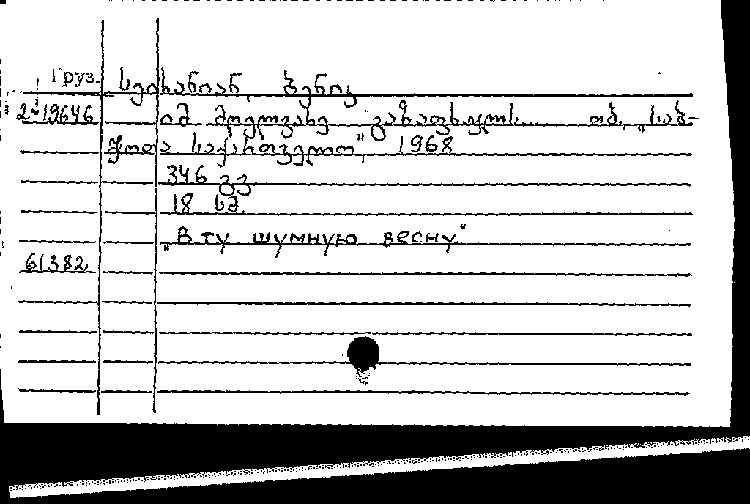 Груз. სეირანიან, ბენიკ
2-19646 იმ მღელვარე გაზაფხულს... თბ., „საბ-
ჭოთა საქართველო", 1968
346 გვ.
18 სმ.
„В ту шумную весну"
61382